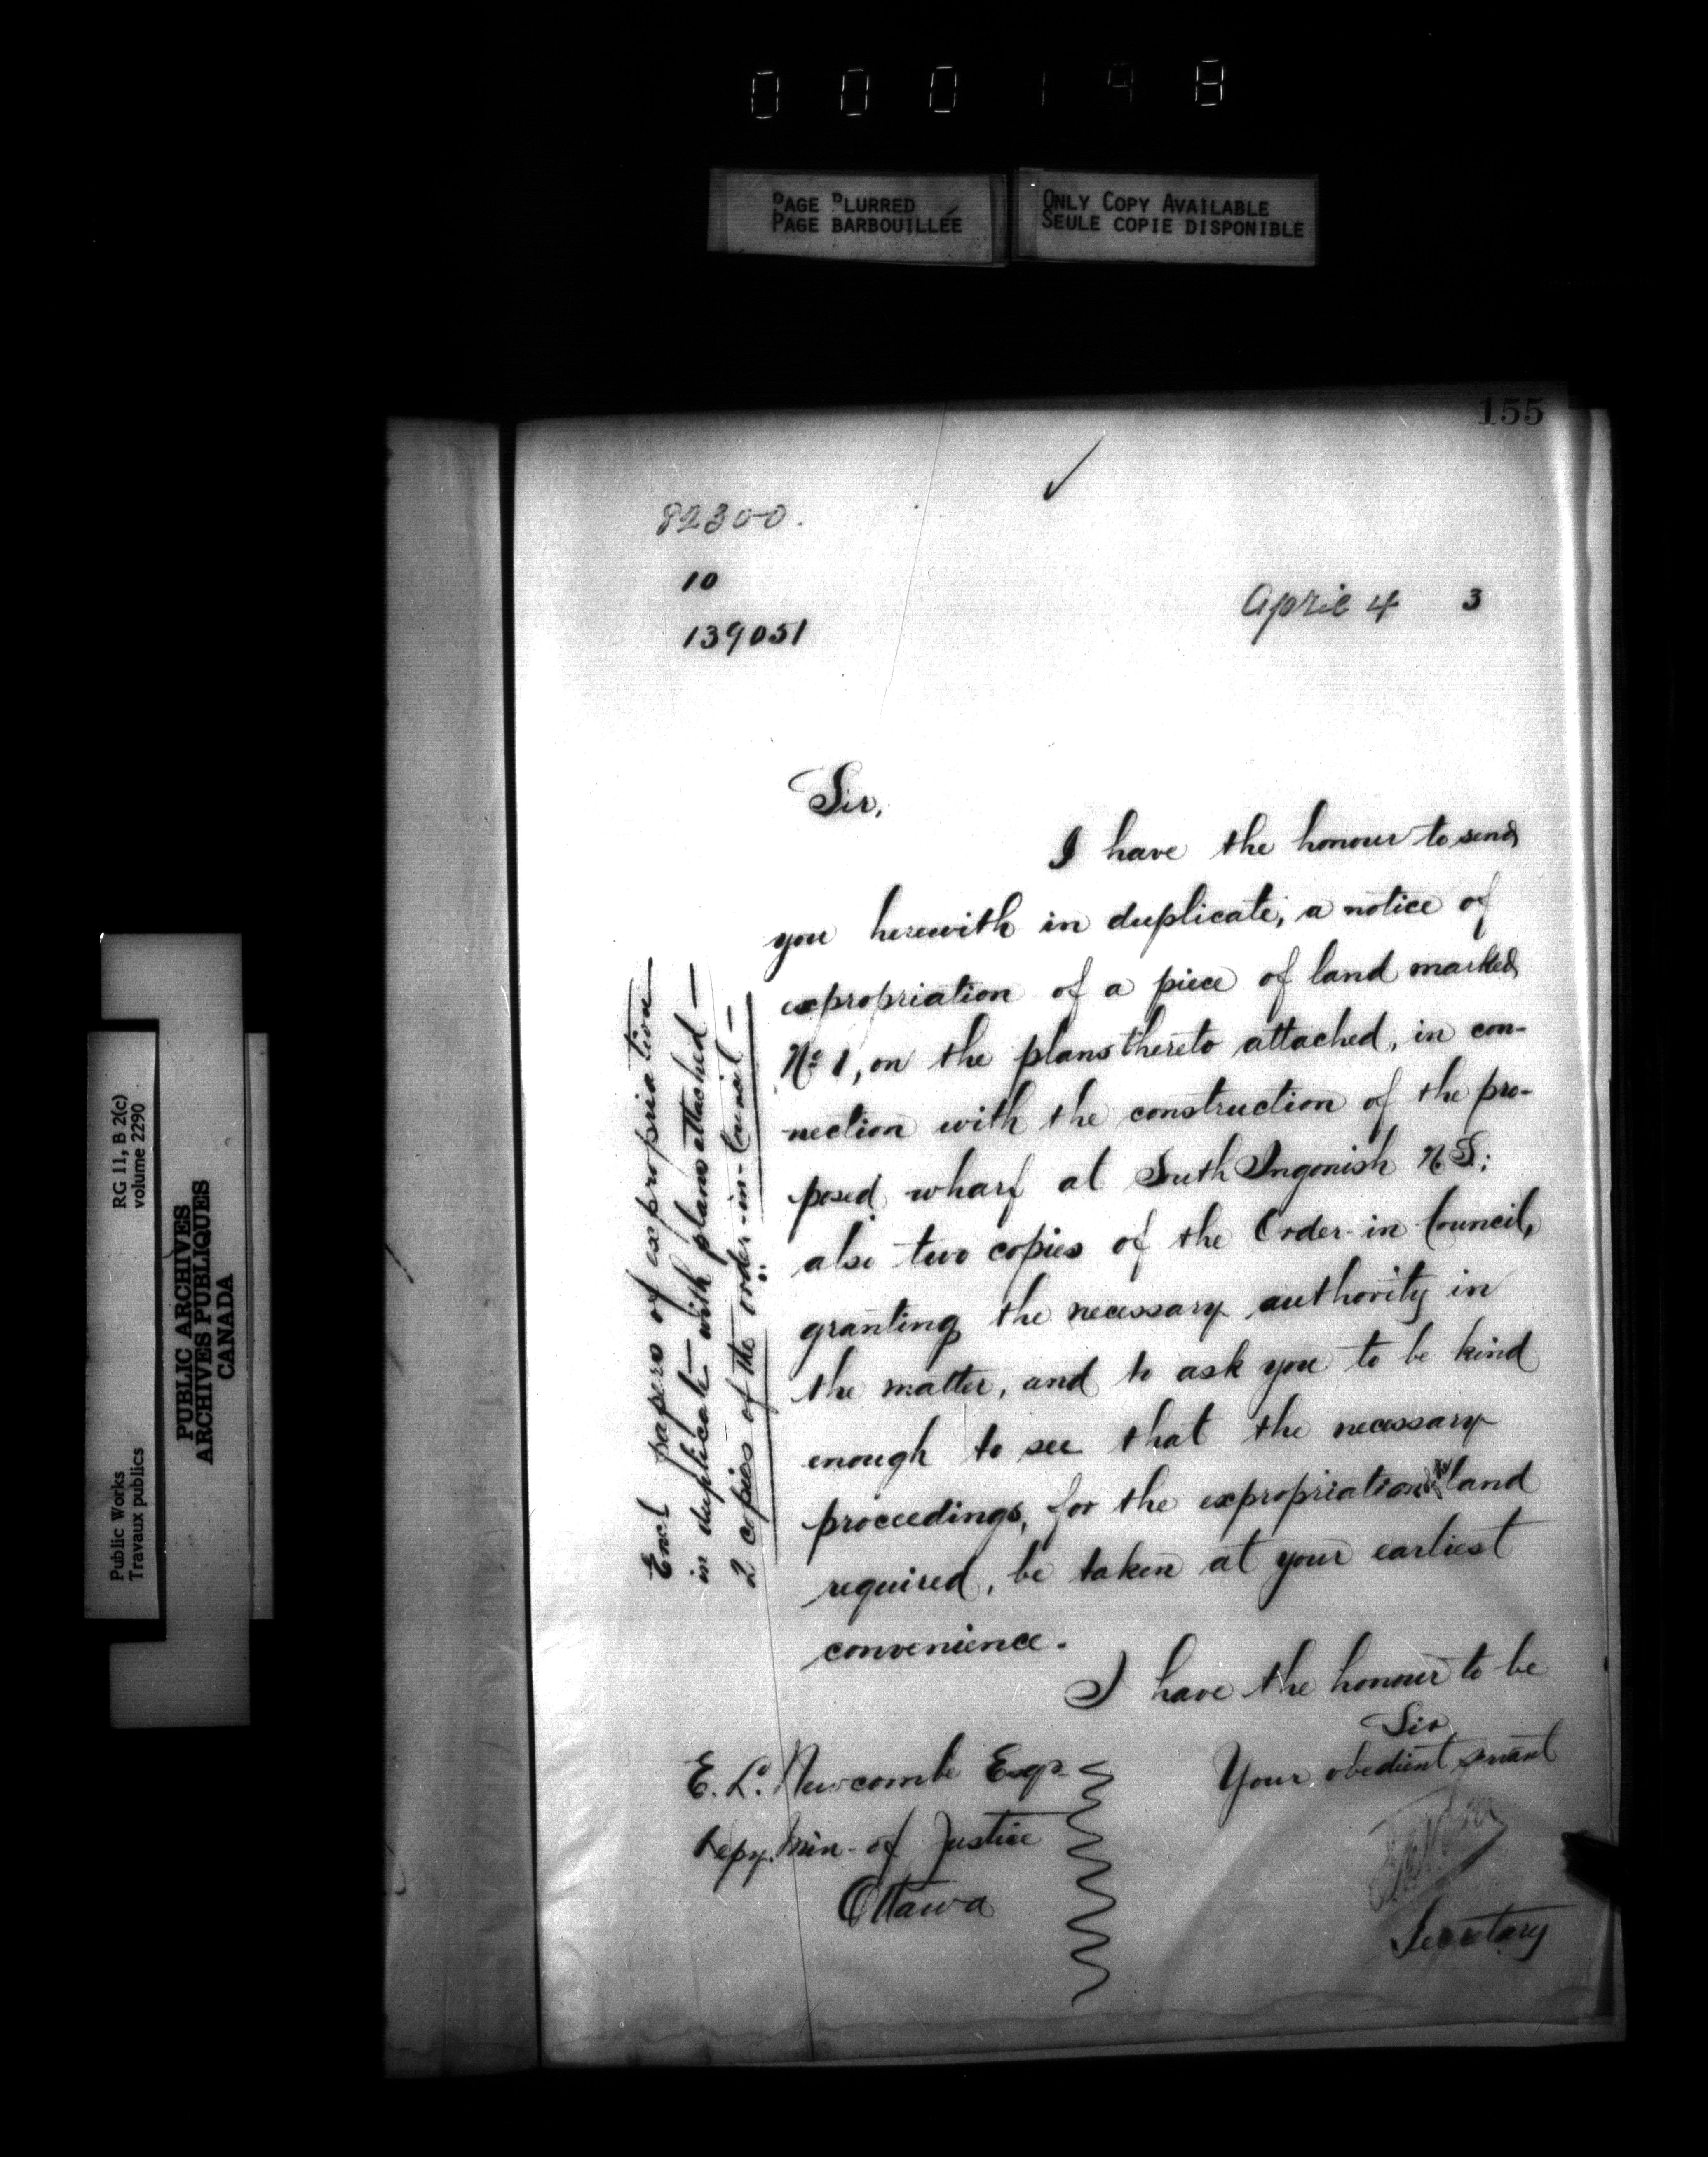 000198
PAGE BLURRED
PAGE BARBOUILLÉE
ONLY COPY AVAILABLE
SEULE COPIE DISPONIBLE
155
82300.
10
139051
April 4 3
Sir,
I have the honour to send
you herewith in duplicate, a notice of
expropriation of a piece of land marked
No 1, on the plans thereto attached, in con-
nection with the construction of the pro-
posed wharf at South Ingonish N.S;
also two copies of the Order-in-Council,
granting the necessary authority in
the matter, and to ask you to be kind
enough to see that the necessary
proceedings, for the expropriation of land
required, be taken at your earliest
convenience.
I have the honour to be
Sir
Your obedient servant
Secretary
E. L. Newcombe Esqr.
Depy. Min. of Justice
Ottawa
Encl papers of expropriation
in duplicate with plans attached —
2 copies of the order-in-Council —
RG 11, B 2(c)
volume 2290
Public Works
Travaux publics
PUBLIC ARCHIVES
ARCHIVES PUBLIQUES
CANADA